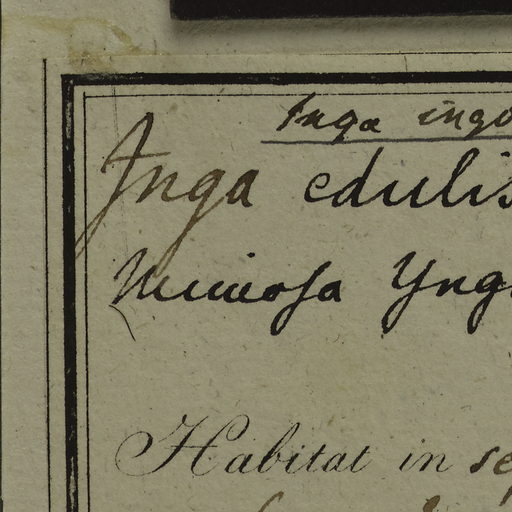 Inga ingo
Inga edulis
Mimosa Ynga
Habitat in se